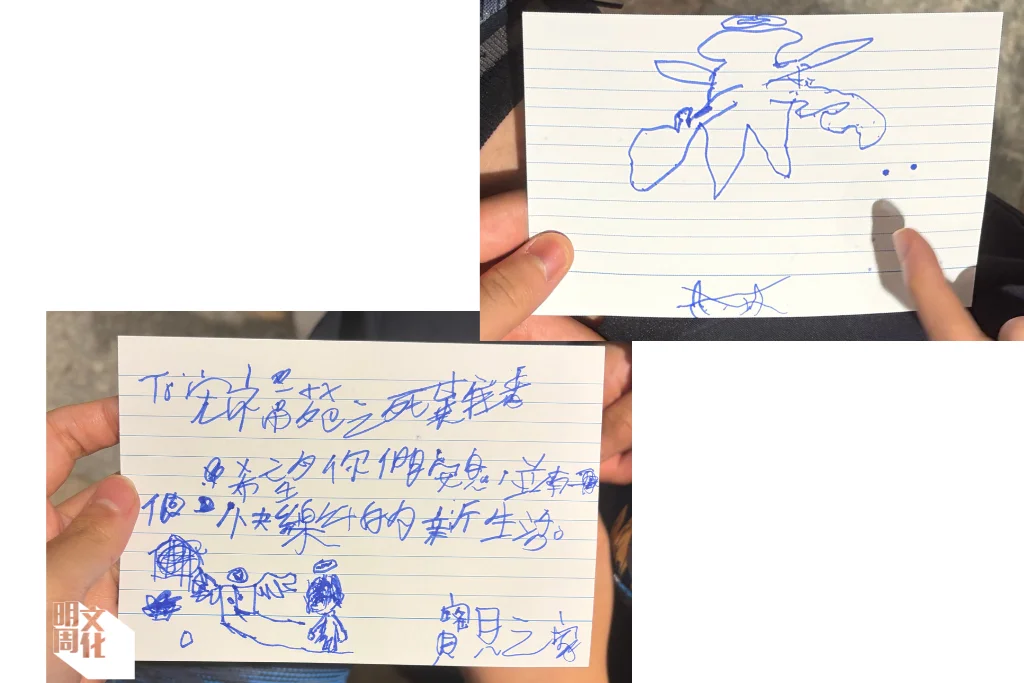 To: 宏 苑之死
希望你們安息，並有一
個 快樂 的新生活。
之家
明周文化